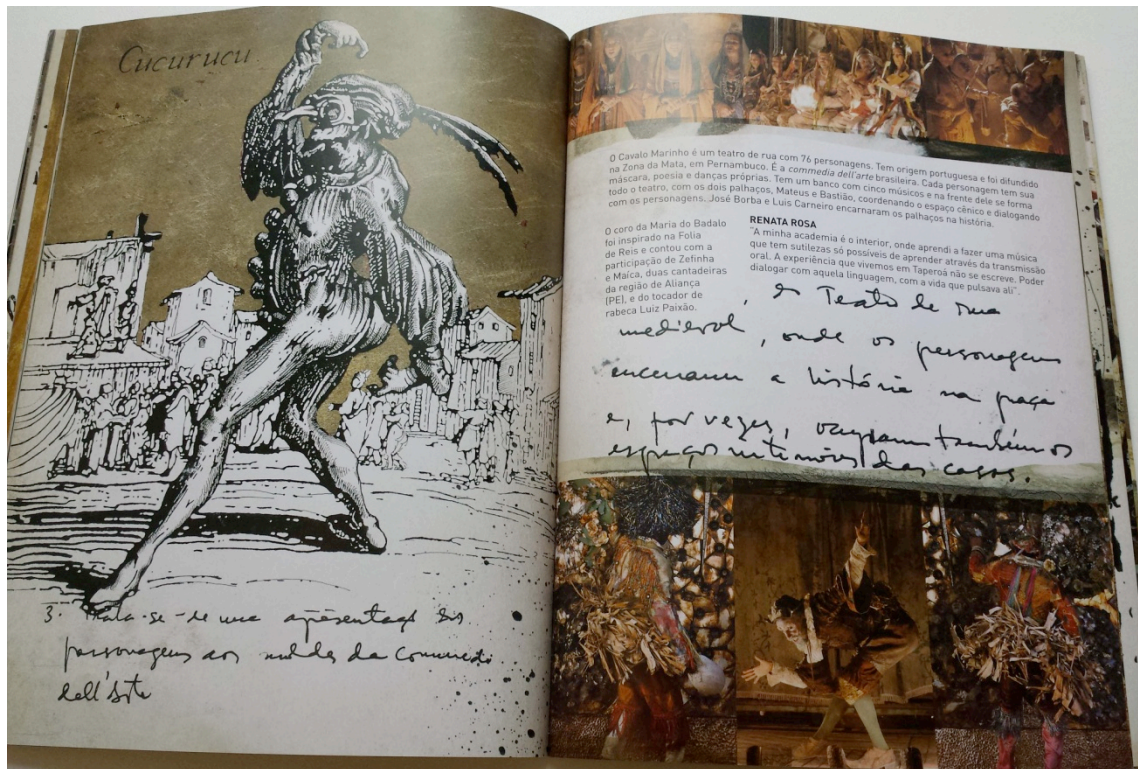 Cucurucu.
3. Trata-se de uma apresentação dos
personagens aos moldes da Commedia
dell'Arte
O Cavalo Marinho é um teatro de rua com 76 personagens. Tem origem portuguesa e foi difundido
na Zona da Mata, em Pernambuco. É a commedia dell'arte brasileira. Cada personagem tem sua
máscara, poesia e danças próprias. Tem um banco com cinco músicos e na frente dele se forma
todo o teatro, com os dois palhaços, Mateus e Bastião, coordenando o espaço cênico e dialogando
com os personagens. José Borba e Luis Carneiro encarnaram os palhaços na história.
O coro da Maria do Badalo
foi inspirado na Folia
de Reis e contou com a
participação de Zefinha
e Maíca, duas cantadeiras
da região de Aliança
(PE), e do tocador de
rabeca Luiz Paixão.
RENATA ROSA
"A minha academia é o interior, onde aprendi a fazer uma música
que tem sutilezas só possíveis de aprender através da transmissão
oral. A experiência que vivemos em Taperoá não se escreve. Poder
dialogar com aquela linguagem, com a vida que pulsava ali".
, do Teatro de rua
medieval, onde os personagens
encenam a história na praça
e, por vezes, ocupam também os
espaços interiores das casas.